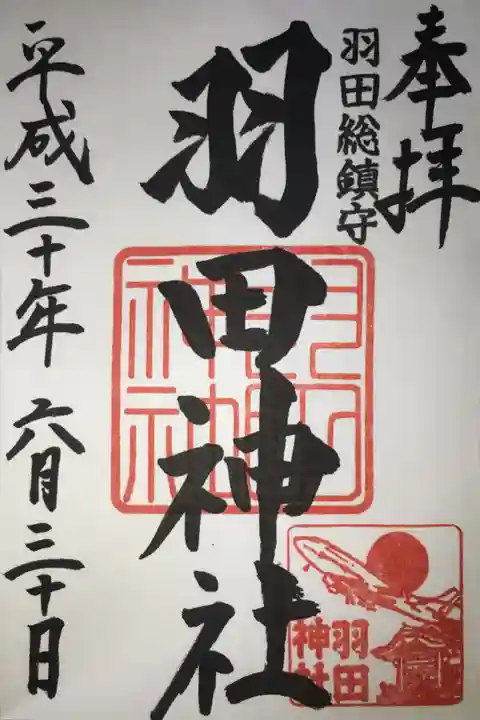 奉拝
羽田総鎮守
羽田神社
平成三十年六月三十日
羽田神社
羽田
神社